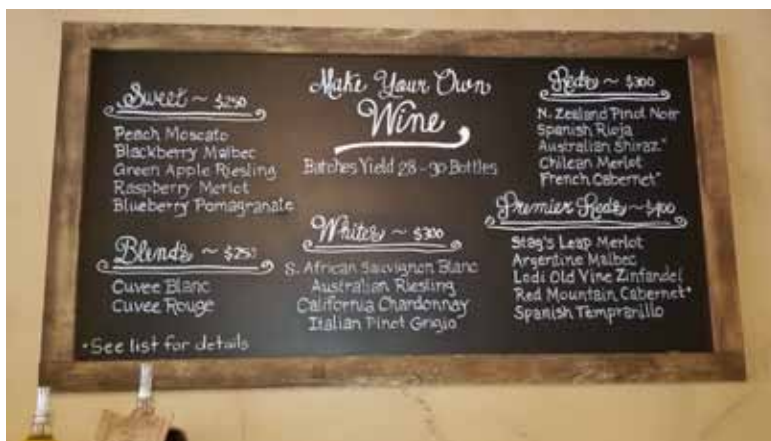 Make Your Own
Wine
Batches Yield 28-30 Bottles
Sweet ~ $250
Peach Moscato
Blackberry Malbec
Green Apple Riesling
Raspberry Merlot
Blueberry Pomagranate
Blends ~ $250
Cuvee Blanc
Cuvee Rouge
*See list for details
Whites ~ $300
S. African Sauvignon Blanc
Australian Riesling
California Chardonnay
Italian Pinot Grigio
Reds ~ $300
N. Zealand Pinot Noir
Spanish Rioja
Australian Shiraz*
Chilean Merlot
French Cabernet*
Premier Reds ~ $400
Stag's Leap Merlot
Argentine Malbec
Lodi Old Vine Zinfandel
Red Mountain Cabernet*
Spanish Tempranillo